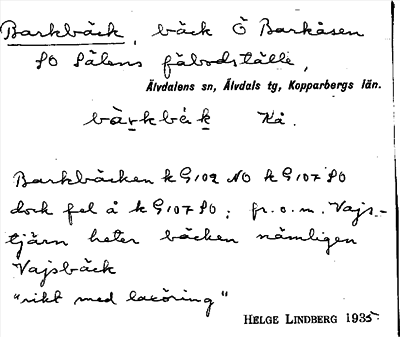 Barkbäck, bäck Ö Barkåsen
SO Sälens fäbodställe,
Älvdalens sn, Älvdals tg, Kopparbergs län.
bàrkbèk Kå.
Barkbäcken k G 102 NO k G 107 SO
dock fel å k G 107 SO; fr.o.m. Vajs-
tjärn heter bäcken nämligen
Vajsbäck
"rikt med laxöring"
HELGE LINDBERG 1935